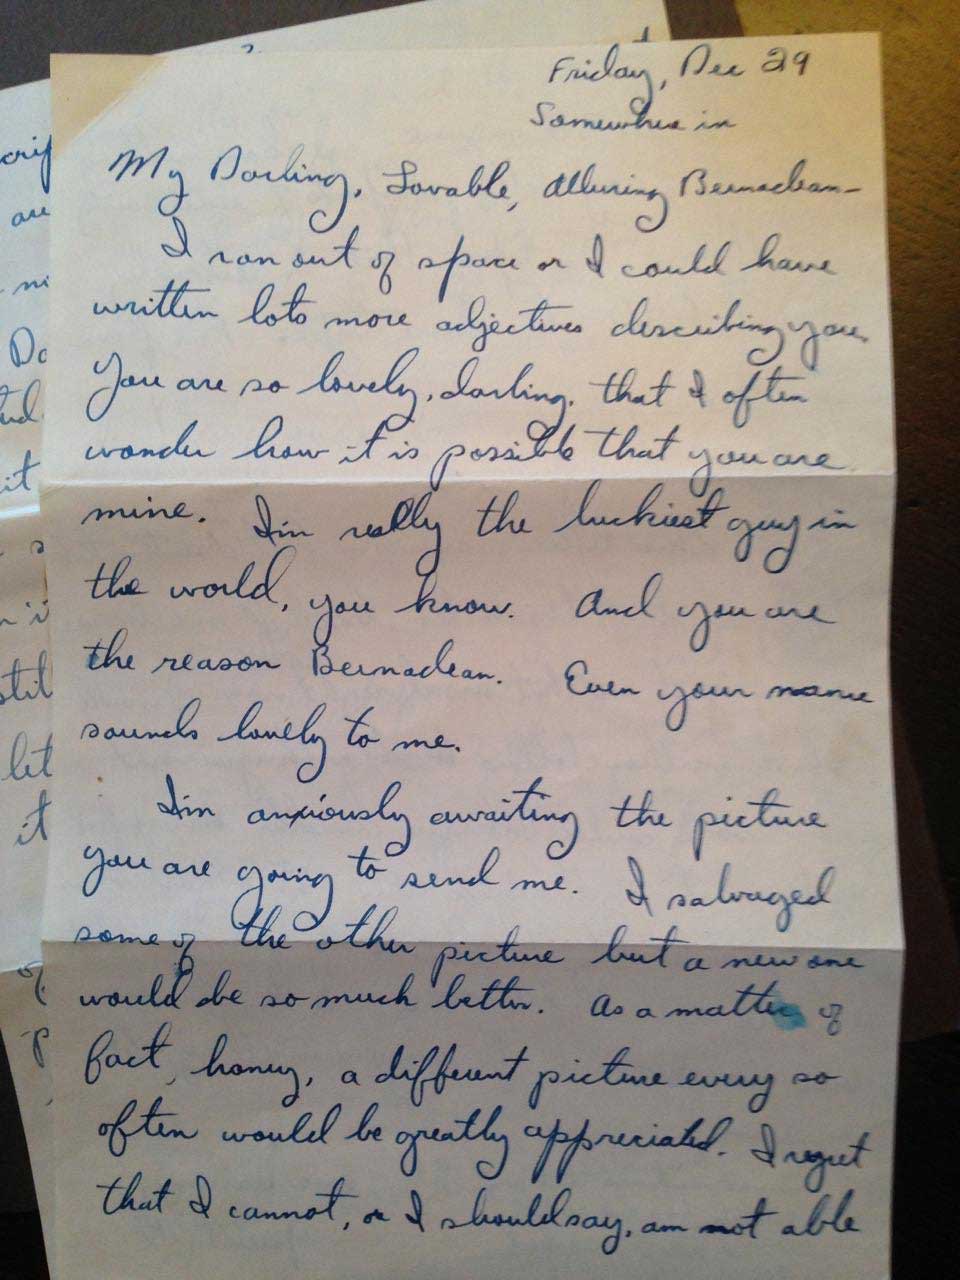 Friday, Dec 29
Somewhere in
My Darling, Lovable, Alluring Bernadean—
I ran out of space or I could have
written lots more adjectives describing you.
You are so lovely, darling, that I often
wonder how it is possible that you are
mine. I'm really the luckiest guy in
the world, you know. And you are
the reason Bernadean. Even your name
sounds lovely to me.
I'm anxiously awaiting the picture
you are going to send me. I salvaged
some of the other picture but a new one
would be so much better. As a matter of
fact, honey, a different picture every so
often would be greatly appreciated. I regret
that I cannot, or I should say, am not able